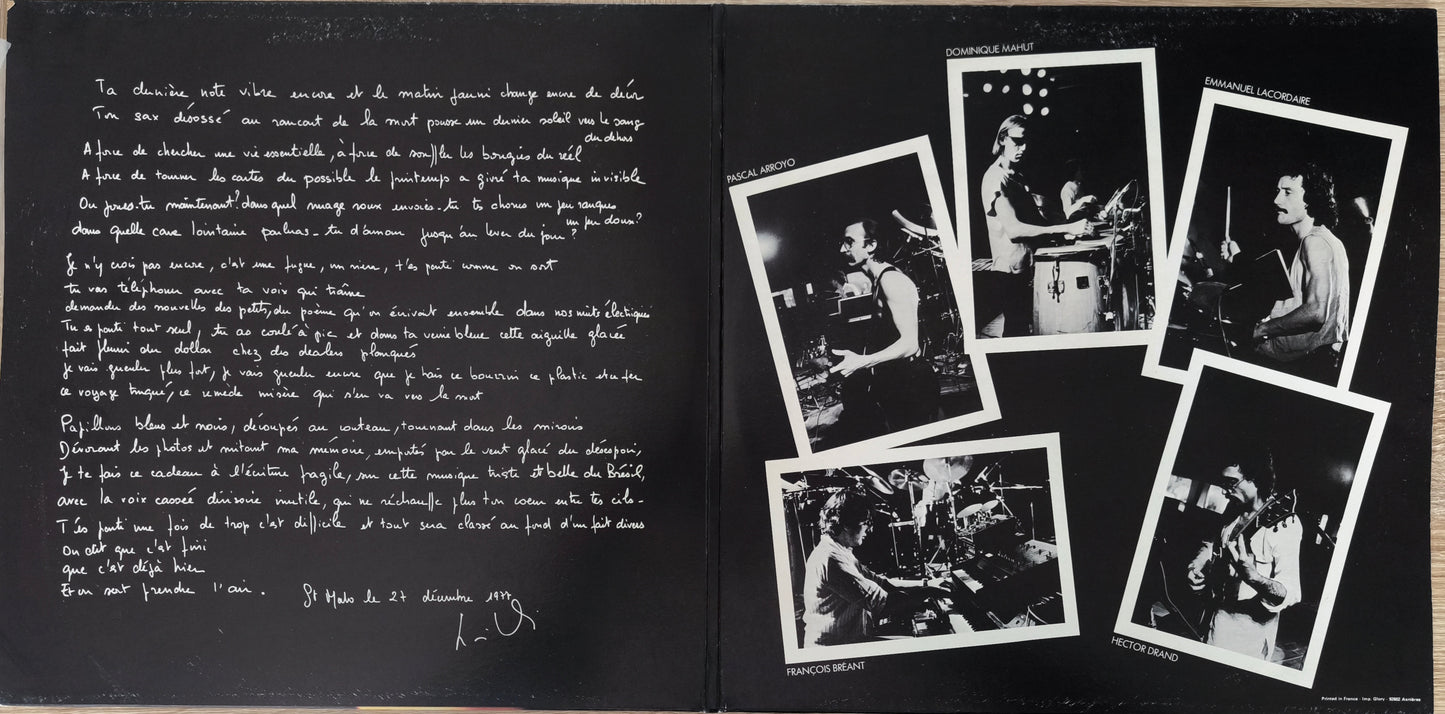 Ta dernière note vibre encore et le matin jauni change encore de décor
Ton sax désossé au rancart de la mort pousse un dernier soleil vers le sang
du dehors
A force de chercher une vie essentielle, à force de souffler les bougies du réel
A force de tourner les cartes du possible le printemps a givré ta musique invisible
Ou joues-tu maintenant? dans quel nuage roux envoies-tu tes chorus un peu rauques
un peu doux?
dans quelle cave lointaine parleras-tu d'amour jusqu'au lever du jour?
Je n'y crois pas encore, c'est une fugue, un rien, t'es parti comme on sort
tu vas téléphoner avec ta voix qui traîne
demander des nouvelles des petits, du poème qu'on écrivait ensemble dans nos nuits électriques
Tu es parti tout seul, tu as coulé à pic et dans ta veine bleue cette aiguille glacée
fait fleurir du dollar chez des dealers planqués
Je vais gueuler plus fort, je vais gueuler encore que je hais ce bourrin ce plastic et ce fer
ce voyage truqué, ce remède misère qui s'en va vers la mort
Papillons bleus et noirs, découpés au couteau, tournant dans les miroirs
Dévorant les photos et mitant ma mémoire, emportés par le vent glacé du désespoir,
Je te fais ce cadeau à l'écriture fragile, sur cette musique triste et belle du Brésil,
avec la voix cassée dérisoire inutile, qui ne réchauffe plus ton coeur entre tes cils-
T'es parti une fois de trop c'est difficile et tout sera classé au fond d'un fait divers
On dit que c'est fini
que c'est déjà hier
Et on sort prendre l'air.
St Malo le 27 décembre 1977
DOMINIQUE MAHUT
EMMANUEL LACORDAIRE
PASCAL ARROYO
FRANÇOIS BRÉANT
HECTOR DRAND
Printed in France - Imp. Glory - 92602 Asnières